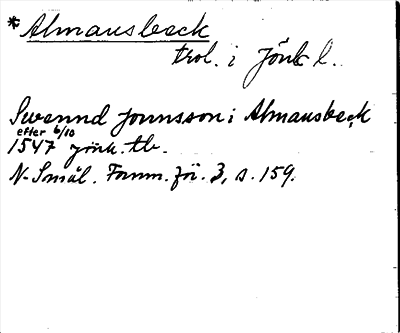 *Almansbeck
trol. i Jönk l.
Swennd Jonnsson i Almansbeck
efter 6/10
1547 Jönk. tb.
N. Smål. Fornm. för. 3, s. 159.